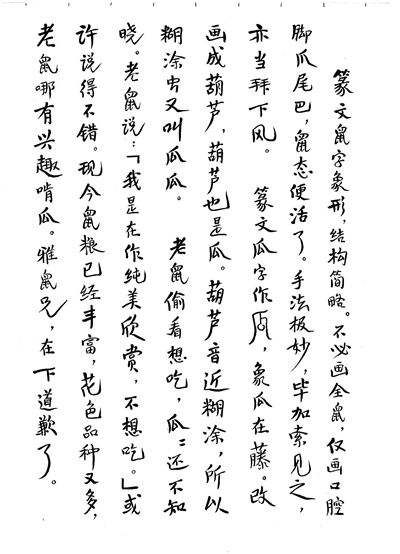 篆文鼠字象形，结构简略。不必画全鼠，仅画口腔
脚爪尾巴，鼠态便活了。手法极妙，毕加索见之，
亦当拜下风。　篆文瓜字作，象瓜在藤。改
画成葫芦，葫芦也是瓜。葫芦音近糊涂，所以
糊涂虫又叫瓜瓜。　老鼠偷看想吃，瓜：还不知
晓。老鼠说：「我是在作纯美欣赏，不想吃。」或
许说得不错。现今鼠粮已经丰富，花色品种又多，
老鼠哪有兴趣啃瓜。雅鼠兄，在下道歉了。